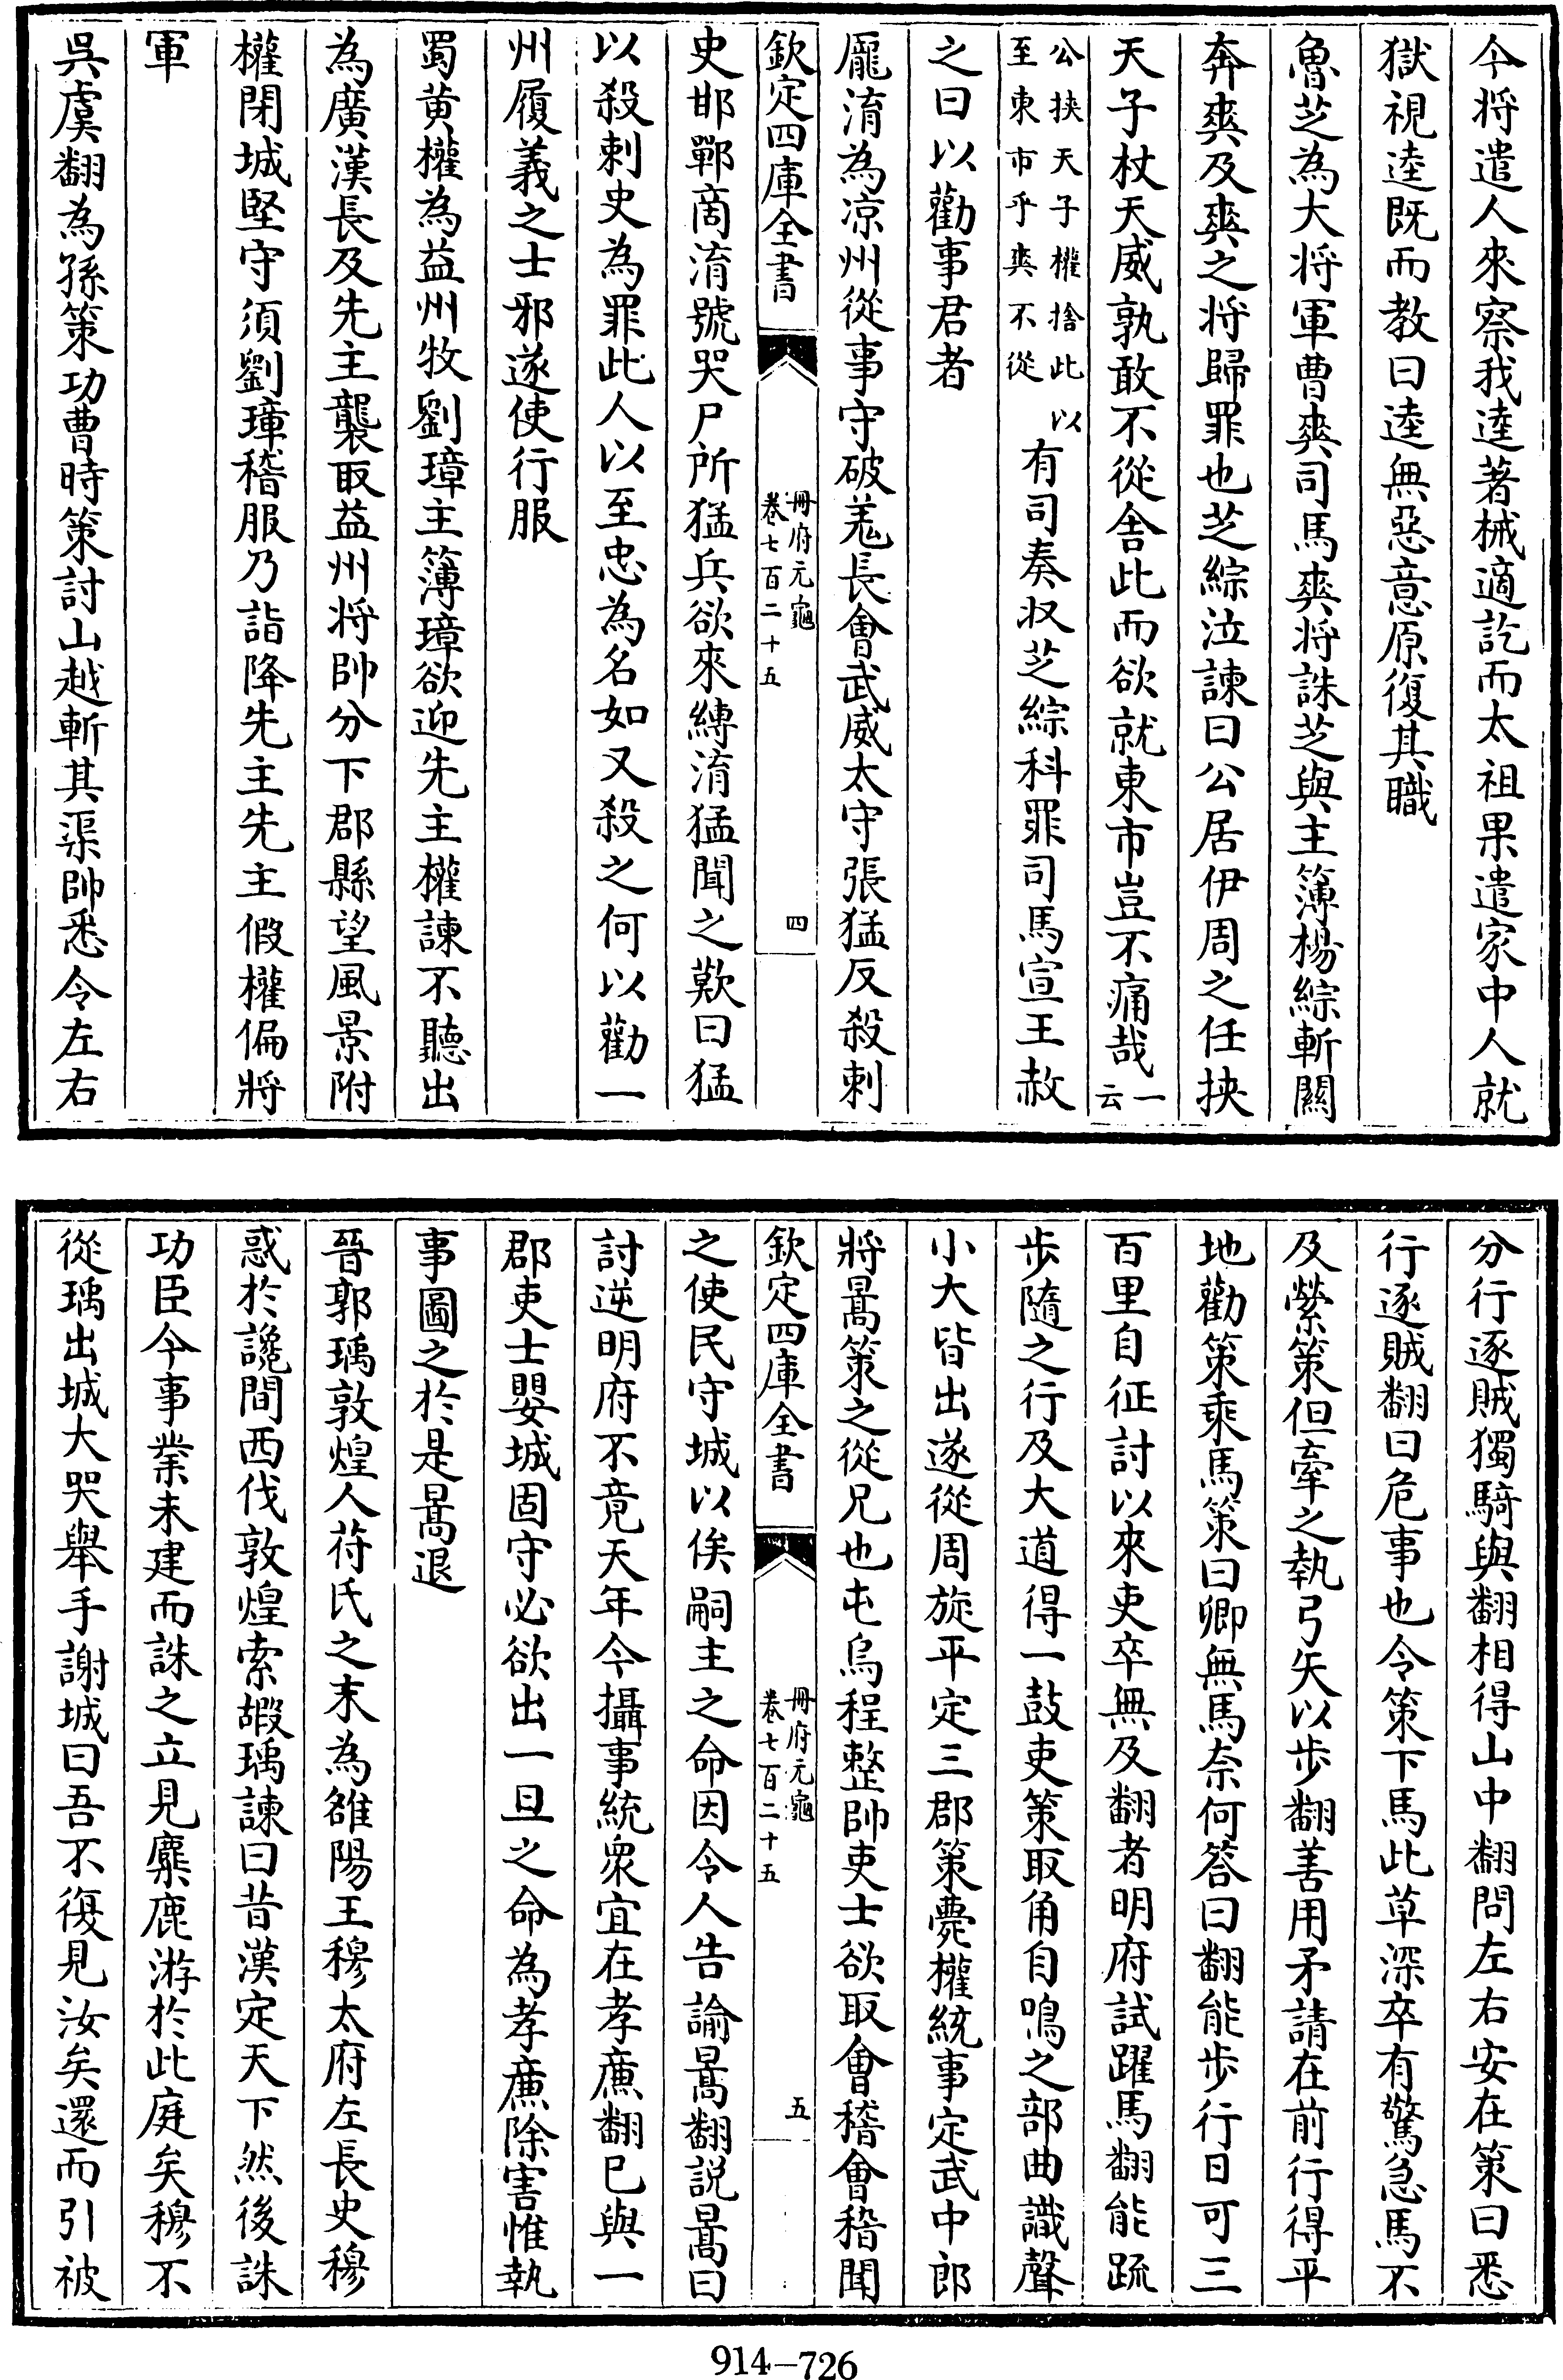 今将遣人來察我逵著械適訖而太祖果遣家中人就
獄視逵既而教曰逵無惡意原復其職
魯芝為大将軍曹爽司馬爽将誅芝與主簿楊綜斬關
奔爽及爽之将歸罪也芝綜泣諫曰公居伊周之任挾
天子杖天威孰敢不從舍此而欲就東市豈不痛哉一云
公挾天子權捨此以
至東市乎爽不從
有司奏収芝綜科罪司馬宣王赦
之曰以勸事君者
龎淯為凉州從事守破羗長會武威太守張猛反殺刺
欽定四庫全書
冊府元龜
卷七百二十五
四
史邯鄲啇淯號哭尸所猛兵欲來縛淯猛聞之歎曰猛
以殺刺史為罪此人以至忠為名如又殺之何以勸一
州履義之士邪遂使行服
蜀黄權為益州牧劉璋主簿璋欲迎先主權諫不聽出
為廣漢長及先主襲取益州将帥分下郡縣望風景附
權閉城堅守須劉璋稽服乃詣降先主先主假權偏將
軍
吳虞翻為孫策功曹時策討山越斬其渠帥悉令左右
分行逐賊獨騎與翻相得山中翻問左右安在策曰悉
行逐賊翻曰危事也令策下馬此草深卒有驚急馬不
及縈策但牽之執弓矢以歩翻善用矛請在前行得平
地勸策乘馬策曰卿無馬奈何答曰翻能歩行日可三
百里自征討以來吏卒無及翻者明府試躍馬翻能䟽
歩隨之行及大道得一鼓吏策取角自鳴之部曲識聲
小大皆出遂從周旋平定三郡策薨權統事定武中郎
將暠策之從兄也屯烏程整帥吏士欲取會稽會稽聞
欽定四庫全書
冊府元龜
卷七百二十五
五
之使民守城以俟嗣主之命因令人告諭暠翻説暠曰
討逆明府不竟天年今攝事統衆宜在孝廉翻已與一
郡吏士嬰城固守必欲出一旦之命為孝廉除害惟執
事圖之於是暠退
晉郭瑀敦煌人苻氏之末為雒陽王穆太府左長史穆
惑於讒間西伐敦煌索嘏瑀諫曰昔漢定天下然後誅
功臣今事業未建而誅之立見麋鹿游於此庭矣穆不
從瑀出城大哭舉手謝城曰吾不復見汝矣還而引被
914-726